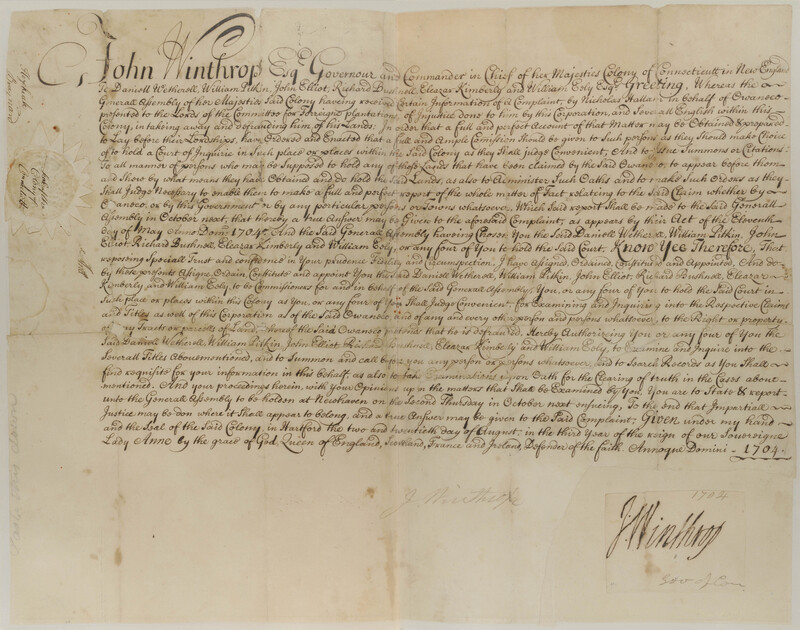 John Winthrop Esqr. Governour and Commander in Chief of her Majesties Colony of Connecticutt in New England
To Daniell Wetherell, William Pitkin, John Elliot, Richard Bushnell, Eleazar Kimberly and William Eely Esqrs. Greeting, Whereas the
Generall Assembly of her Majesties Said Colony having received Certain Information of a Complaint, by Nicholas Hallam in behalf of Owaneco
presented to the Lords of the Committee for Foreign plantations, of Injustice done to him by this Corporation, and Severall English within this
Colony, in taking away and defrauding him of his Lands: In order that a full and perfect Account of that Matter may be Obtained & prepared
to Lay before their Lordships, have Ordered and Enacted that a full and Ample Comission Should be given to Such persons as they Should make Choice
of to hold a Court of Inquirie in Such place or places within the Said Colony as they Shall judge Convenient; And to Issue Summons or Citations:
To all manner of persons who may be Supposed to hold any of those Lands that have been claimed by the Said Owaneco, to appear before them
and Shew by what means they have Obtained and do hold the Said Lands, as also to Administer Such Oaths and to make Such Orders as they
Shall Judge Necessary to enable them to make a full and perfect report of the whole matter of Fact relating to the Said Claim whether by
Owaneco, or by this Government or by any particular persons or Towns whatsoever, Which Said report Shall be made to the Said Generall
Assembly in October next, that thereby a true Answer may be Given to the aforesaid Complaint; as appears by their Act of the Eleventh
day of May Anno Dom: 1704. And the Said Generall Assembly having Chosen You the Said Daniell Wetherell, William Pitkin, John
Elliot, Richard Bushnell, Eleazar Kimberly and William Eely, or any four of You to hold the Said Court; Know Yee Therefore, That
reposing Speciall Trust and confidence in Your prudence Fidelity and Circumspection, I have Assigned, Ordained, Constituted and Appointed, And do
by these presents Assigne, Ordain, Constitute and appoint You the Said Daniell Wetherell, William Pitkin, John Elliot, Richard Bushnell, Eleazar
Kimberly, and William Eely, to be Commissioners for and in behalf of the Said Generall Assembly; You, or any four of You to hold the Said Court in
Such place or places within this Colony as You, or any four of You Shall Judge Convenient, for Examining and Inquireing into the Respective Claims
and Titles as well of this Corporation as of the Said Owaneco and of any and every other person and persons whatsoever, to the Right or property
of any tracts or parcels of Land, whereof the Said Owaneco pretends that he is defrauded, Hereby Authorizeing You or any four of You the
Said Daniell Wetherell, William Pitkin, John Elliot, Richard Bushnell, Eleazar Kimberly and William Eely, to Examine and Inquire into the
Severall Titles Abovementioned, and to Summon and call before you any person or persons whatsoever, and to Search Records as You Shall
find requisite for your information in this behalf, as also to take Examinations upon Oath for the Clearing of truth in the Cases above-
mentioned. And your proceedings herein, with your Opinions upon the matters that Shall be Examined by You, You are to State & report
unto the Generall Assembly to be holden at Newhaven on the Second Thursday in October next ensueing, To the end that Impartiall
Justice may be don where it Shall appear to belong, and a true Answer may be given to the Said Complaint: Given under my hand
and the Seal of the Said Colony, in Hartford the two and twentieth day of August: in the third Year of the reign of our Sovereigne
Lady Anne by the grace of God, Queen of England, Scotland, France and Ireland, Defender of the faith. Annoque Domini 1704
J. Winthrop
1704
J: Winthrop
Gov of Con